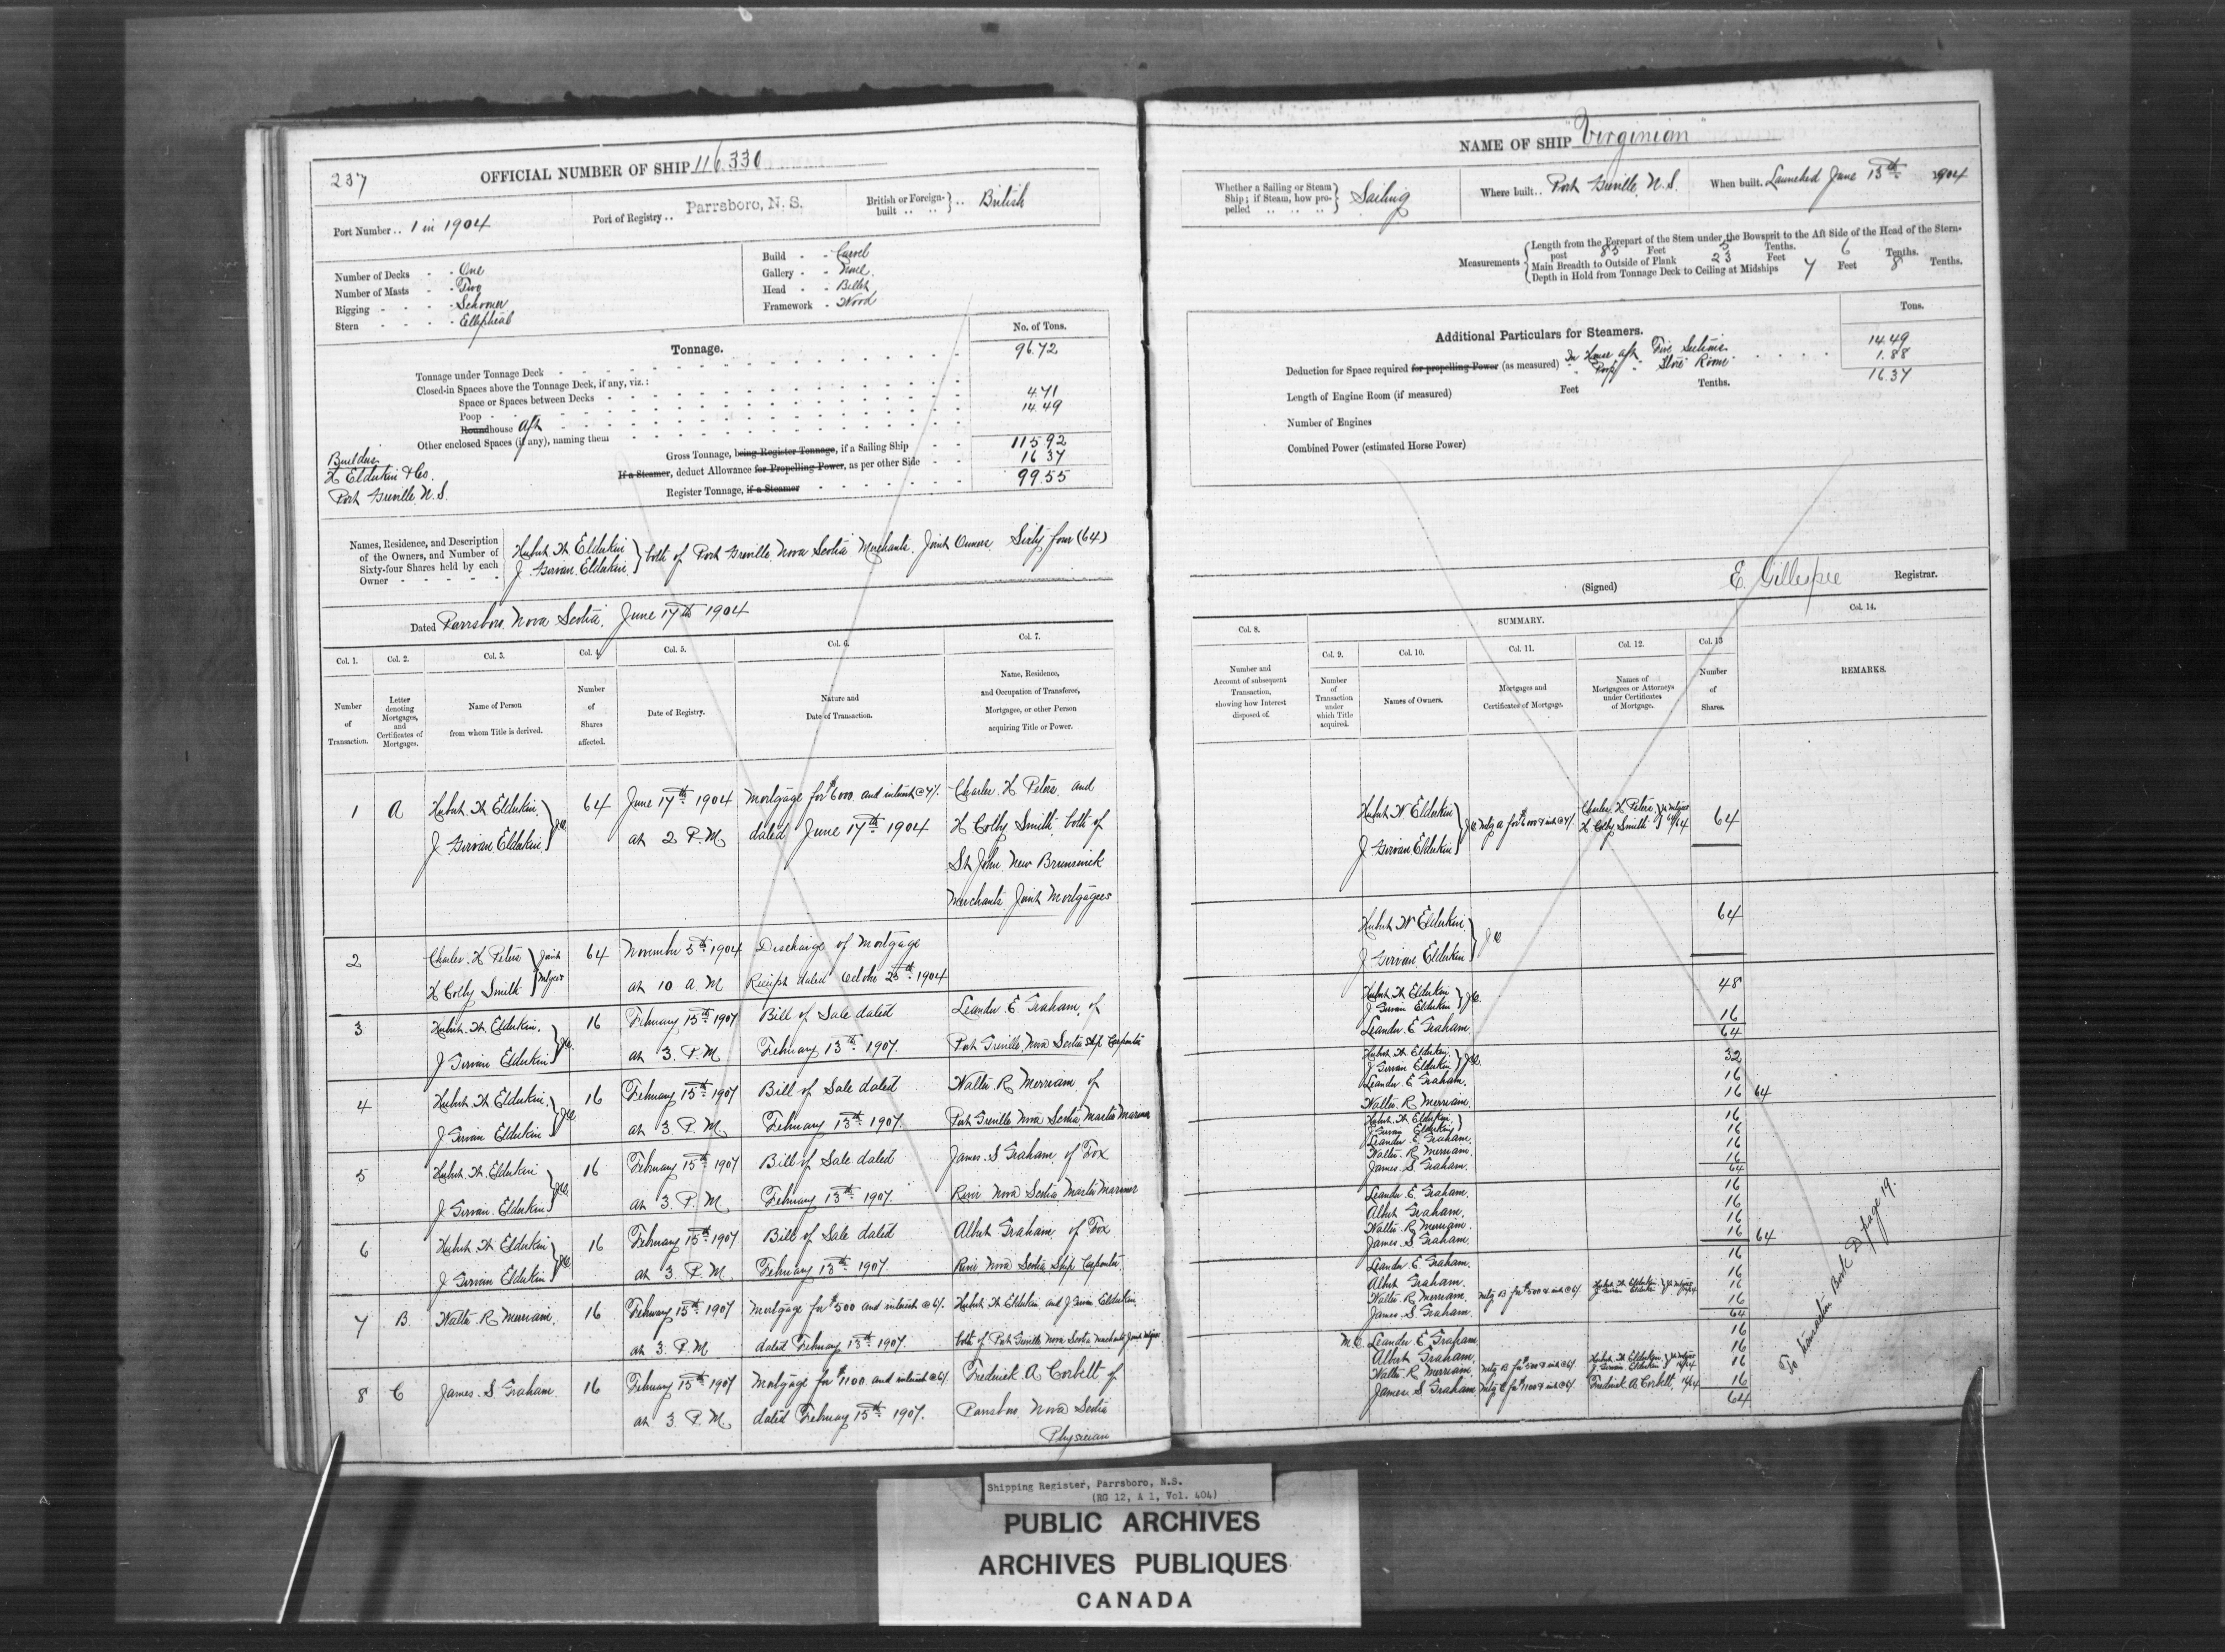 237
OFFICIAL NUMBER OF SHIP 116.330
Port Number .. 1 in 1904
Port of Registry .. Parrsboro, N. S.
British or Foreign-built .. British
Number of Decks - - One
Number of Masts - - Two
Rigging - - - - Schooner
Stern - - - - Elliptical
Build - - Carvel
Gallery - - None.
Head - - Billet
Framework - Wood
Tonnage.
No. of Tons.
Tonnage under Tonnage Deck 96.72
Closed-in Spaces above the Tonnage Deck, if any, viz.:
Space or Spaces between Decks
Poop 4.71
Roundhouse Aft 14.49
Other enclosed Spaces (if any), naming them
Gross Tonnage, being Register Tonnage, if a Sailing Ship 115.92
If a Steamer, deduct Allowance for Propelling Power, as per other Side 16 37
Register Tonnage, if a Steamer 99.55
Builders
H Elderkin & Co.
Port Greville N. S.
Names, Residence, and Description
of the Owners, and Number of
Sixty-four Shares held by each
Owner - - - - -
Hubert W Elderkin
J. Girvan Elderkin } both of Port Greville Nova Scotia Merchants. Joint Owners. Sixty four (64)
Dated Parrsboro Nova Scotia. June 17th 1904
Col. 1. Col. 2. Col. 3. Col. 4. Col. 5. Col. 6. Col. 7.
Number of Transaction.
Letter denoting Mortgages, and Certificates of Mortgages.
Name of Person from whom Title is derived.
Number of Shares affected.
Date of Registry.
Nature and Date of Transaction.
Name, Residence, and Occupation of Transferee, Mortgagee, or other Person acquiring Title or Power.
1 A Hubert W Elderkin 64 June 17th 1904 Mortgage for $6000 and interest @ 7%. Charles H Peters and
J Girvan Elderkin } J.O. at 2 P.M dated June 17th 1904 H Colby Smith both of
St John New Brunswick
Merchants Joint Mortgagees
2 Charles H Peters } Joint 64 November 5th 1904 Discharge of Mortgage
H Colby Smith } Mtgees at 10 A.M Receipt dated October 25th 1904
3 Hubert W Elderkin. 16 February 15th 1907 Bill of Sale dated Leander E. Graham, of
J Girvan Elderkin } J.O. at 3. P.M February 13th 1907. Port Greville, Nova Scotia Ship Carpenter
4 Hubert W Elderkin. 16 February 15th 1907 Bill of Sale dated Walter R Merriam of
J Girvan Elderkin } J.O. at 3 P.M February 13th 1907. Port Greville Nova Scotia Master Mariner
5 Hubert W Elderkin 16 February 15th 1907 Bill of Sale dated James S Graham of Fox
J. Girvan Elderkin } J.O. at 3. P.M February 13th 1907. River Nova Scotia Master Mariner
6 Hubert W Elderkin 16 February 15th 1907 Bill of Sale dated Albert Graham of Fox
J Girvan Elderkin } J.O. at 3. P.M February 13th 1907. River, Nova Scotia Ship Carpenter.
7 B Walter R Merriam. 16 February 15th 1907 Mortgage for $500 and interest @ 6%. Hubert W Elderkin and J Girvan Elderkin.
at 3. P.M dated February 13th 1907. both of Port Greville Nova Scotia Merchants Joint Mtgees
8 C James S Graham. 16 February 15th 1907 Mortgage for $1100 and interest @ 6%. Frederick A Corbett of
at 3. P.M dated February 15th 1907. Parrsboro Nova Scotia
Physician
NAME OF SHIP "Virginian"
Whether a Sailing or Steam Ship; if Steam, how propelled Sailing
Where built .. Port Greville N.S.
When built. Launched June 13th 1904
Measurements
Length from the Forepart of the Stem under the Bowsprit to the Aft Side of the Head of the Sternpost 85 Feet 5 Tenths.
Main Breadth to Outside of Plank 23 Feet 6 Tenths.
Depth in Hold from Tonnage Deck to Ceiling at Midships 7 Feet 8 Tenths.
Additional Particulars for Steamers.
Tons.
Deduction for Space required for propelling Power (as measured) In House aft Five Sections 14.49
" Poop " Store Room 1.88
16.37
Length of Engine Room (if measured) Feet Tenths.
Number of Engines
Combined Power (estimated Horse Power)
(Signed) E. Gillespie Registrar.
Col. 8. SUMMARY. Col. 14.
Col. 9. Col. 10. Col. 11. Col. 12. Col. 13
Number and Account of subsequent Transaction, showing how Interest disposed of.
Number of Transaction under which Title acquired.
Names of Owners.
Mortgages and Certificates of Mortgage.
Names of Mortgagees or Attorneys under Certificates of Mortgage.
Number of Shares.
REMARKS.
Hubert W. Elderkin
J Girvan Elderkin } J.O. Mtg A for $6000 & int @ 7% Charles H. Peters
H Colby Smith } Jt Mtgees 64/64 64
Hubert W Elderkin
J Girvan Elderkin } J.O. 64
Hubert W Elderkin
J Girvan Elderkin } J.O. 48
Leander E Graham 16
64
Hubert W Elderkin.
J Girvan Elderkin } J.O. 32
Leander E Graham. 16
Walter R Merriam. 16 64
Hubert W Elderkin
J Girvan Elderkin } 16
Leander E Graham. 16
Walter R Merriam. 16
James S Graham. 16
64
Leander E. Graham. 16
Albert Graham. 16
Walter R Merriam. 16
James S. Graham. 16 64
Leander E. Graham. 16
Albert Graham. 16
Walter R. Merriam. Mtg B for $500 & int @ 6% Hubert W Elderkin
J Girvan Elderkin } Jt Mtgees 16/64 16
James S Graham. 16
64
M.O. Leander E Graham 16
Albert Graham. 16
Walter R Merriam. Mtg B for $500 & int @ 6% Hubert W Elderkin
J Girvan Elderkin } Jt Mtgees 16/64 16
James S Graham Mtg C for $1100 & int @ 6% Frederick A Corbett, 16/64 16
64
To transaction Book D page 19.
Shipping Register, Parrsboro, N.S.
(RG 12, A 1, Vol. 404)
PUBLIC ARCHIVES
ARCHIVES PUBLIQUES
CANADA